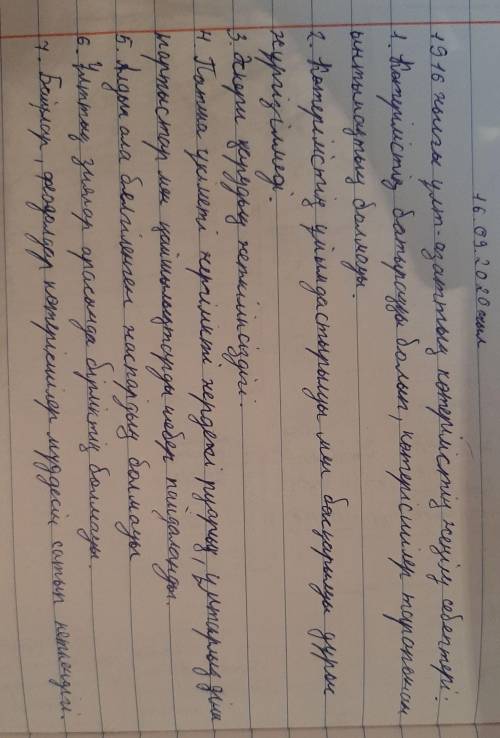 16.09.2020 жыл
1916 жылғы ұлт-азаттық көтерілістің жеңілу себептері:
1. Көтерілістің батыраңқы болып, көтерісшілер тарапынан
ынтымақтың болмауы.
2. Көтерілістің ұйымдастырылуы мен басқарылуы дұрыс
жүргізілмеді.
3. Әскери қарудың жеткіліксіздігі.
4 Патша үкіметі жергілікті жердегі рулық, ұлтаралық, діни
тартыстар мен қайшылықтарды шебер пайдаланды.
5. Алдын ала белгіленген жоспардың болмауы
6. Ұлттық зиялылар арасында бірліктің болмауы.
7. Байлар, феодалдар көтерілісшілер мүддесін сатып кеткендігі.